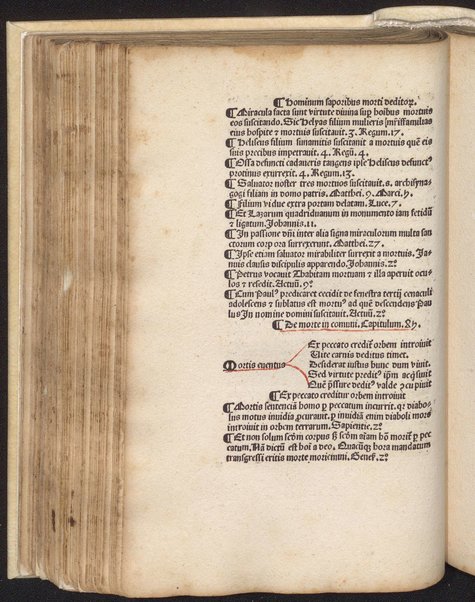 ¶ Hominum saporibus morti deditoꝝ.
¶ Miracula facta sunt virtute diuina sup hoibus mortuis
eos suscitando. Sic Helyas filium mulieris
eius hospite e mortuis suscitauit. 3. Regum. 17.
¶ Heliseus filium sunamitis suscitauit a mortuis quē ei
suis precibus impetrauit. 4. Regū. 4.
¶ Ossa defuncti cadaueris tangens ipse Heliseus
protinus exurrexit. 4. Regum. 13.
¶ Saluator noster tres mortuos suscitauit. s. archisyna-
gogi filiam in domo patris. Matthei. 9. Marci. 5.
¶ Filium vidue extra portam delatam. Luce. 7.
¶ Et Lazarum quadriduanum in monumento iam fetidū
& ligatum. Iohannis. 11.
¶ In passione dn̄i inter alia signa miraculorum multa san
ctorum corpora surrexerunt. Matthei. 27.
¶ Ipse etiam saluator mirabiliter surrexit a mortuis. Ia-
nuis clausis discipulis apparendo. Iohannis. 20.
¶ Petrus vocauit Thabitam mortuam & illa aperuit ocu-
los & resedit. Actuū. 9.
¶ Cum Paulꝰ predicaret cecidit de fenestra tertij cenaculi
adolescens & sublatus est mortuꝰ ad quē descendens Pau
lus In nomine domini suscitauit. Actuū. 20.
¶ De morte in comuni. Capitulum.
Mortis euentus
Ex peccato credit᷑ orbem introiuit
Uite carnis deditus timet.
Desiderat iustus hunc dum viuit.
Sed virtute preditꝰ ip̄m acq̄siuit
¶ Ex peccato creditur orbem introiuit
¶ Mortis sentenciā homo ꝑ peccatum incurrit. qr diabo-
lus motus inuidia ꝓcurauit. ꝑ inuidiā enim diaboli mors
introiuit in orbem terrarum. Sapientie. 2.
¶ Et non solum scd̄m corpus sꝫ scd̄m aīam hō morit᷑ ꝑ pec
catum. Nā dictū est hoī a deo. Quacūqꝫ hora mandatum
transgressi eritis morte moriemini. Genes̄. 2.